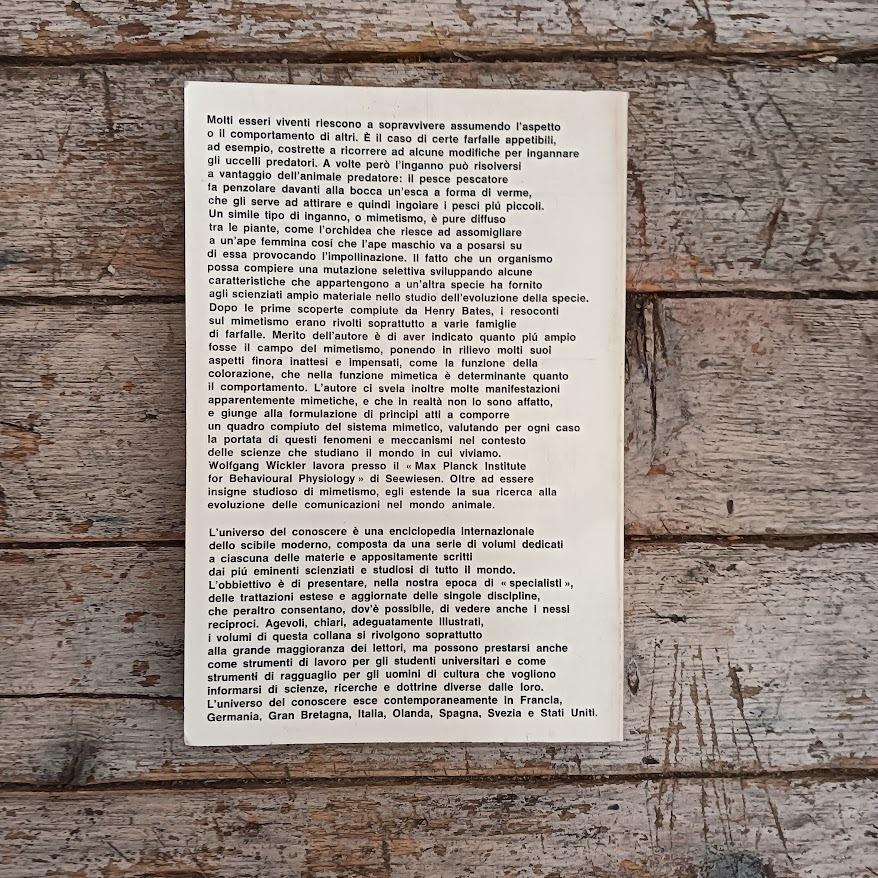 Molti esseri viventi riescono a sopravvivere assumendo l'aspetto
o il comportamento di altri. È il caso di certe farfalle appetibili,
ad esempio, costrette a ricorrere ad alcune modifiche per ingannare
gli uccelli predatori. A volte però l'inganno può risolversi
a vantaggio dell'animale predatore: il pesce pescatore
fa penzolare davanti alla bocca un'esca a forma di verme,
che gli serve ad attirare e quindi ingoiare i pesci piú piccoli.
Un simile tipo di inganno, o mimetismo, è pure diffuso
tra le piante, come l'orchidea che riesce ad assomigliare
a un'ape femmina cosí che l'ape maschio va a posarsi su
di essa provocando l'impollinazione. Il fatto che un organismo
possa compiere una mutazione selettiva sviluppando alcune
caratteristiche che appartengono a un'altra specie ha fornito
agli scienziati ampio materiale nello studio dell'evoluzione della specie.
Dopo le prime scoperte compiute da Henry Bates, i resoconti
sul mimetismo erano rivolti soprattutto a varie famiglie
di farfalle. Merito dell'autore è di aver indicato quanto piú ampio
fosse il campo del mimetismo, ponendo in rilievo molti suoi
aspetti finora inattesi e impensati, come la funzione della
colorazione, che nella funzione mimetica è determinante quanto
il comportamento. L'autore ci svela inoltre molte manifestazioni
apparentemente mimetiche, e che in realtà non lo sono affatto,
e giunge alla formulazione di principi atti a comporre
un quadro compiuto del sistema mimetico, valutando per ogni caso
la portata di questi fenomeni e meccanismi nel contesto
delle scienze che studiano il mondo in cui viviamo.
Wolfgang Wickler lavora presso il « Max Planck Institute
for Behavioural Physiology » di Seewiesen. Oltre ad essere
insigne studioso di mimetismo, egli estende la sua ricerca alla
evoluzione delle comunicazioni nel mondo animale.
L'universo del conoscere è una enciclopedia internazionale
dello scibile moderno, composta da una serie di volumi dedicati
a ciascuna delle materie e appositamente scritti
dai piú eminenti scienziati e studiosi di tutto il mondo.
L'obbiettivo è di presentare, nella nostra epoca di « specialisti »,
delle trattazioni estese e aggiornate delle singole discipline,
che peraltro consentano, dov'è possibile, di vedere anche i nessi
reciproci. Agevoli, chiari, adeguatamente illustrati,
i volumi di questa collana si rivolgono soprattutto
alla grande maggioranza dei lettori, ma possono prestarsi anche
come strumenti di lavoro per gli studenti universitari e come
strumenti di ragguaglio per gli uomini di cultura che vogliono
informarsi di scienze, ricerche e dottrine diverse dalle loro.
L'universo del conoscere esce contemporaneamente in Francia,
Germania, Gran Bretagna, Italia, Olanda, Spagna, Svezia e Stati Uniti.